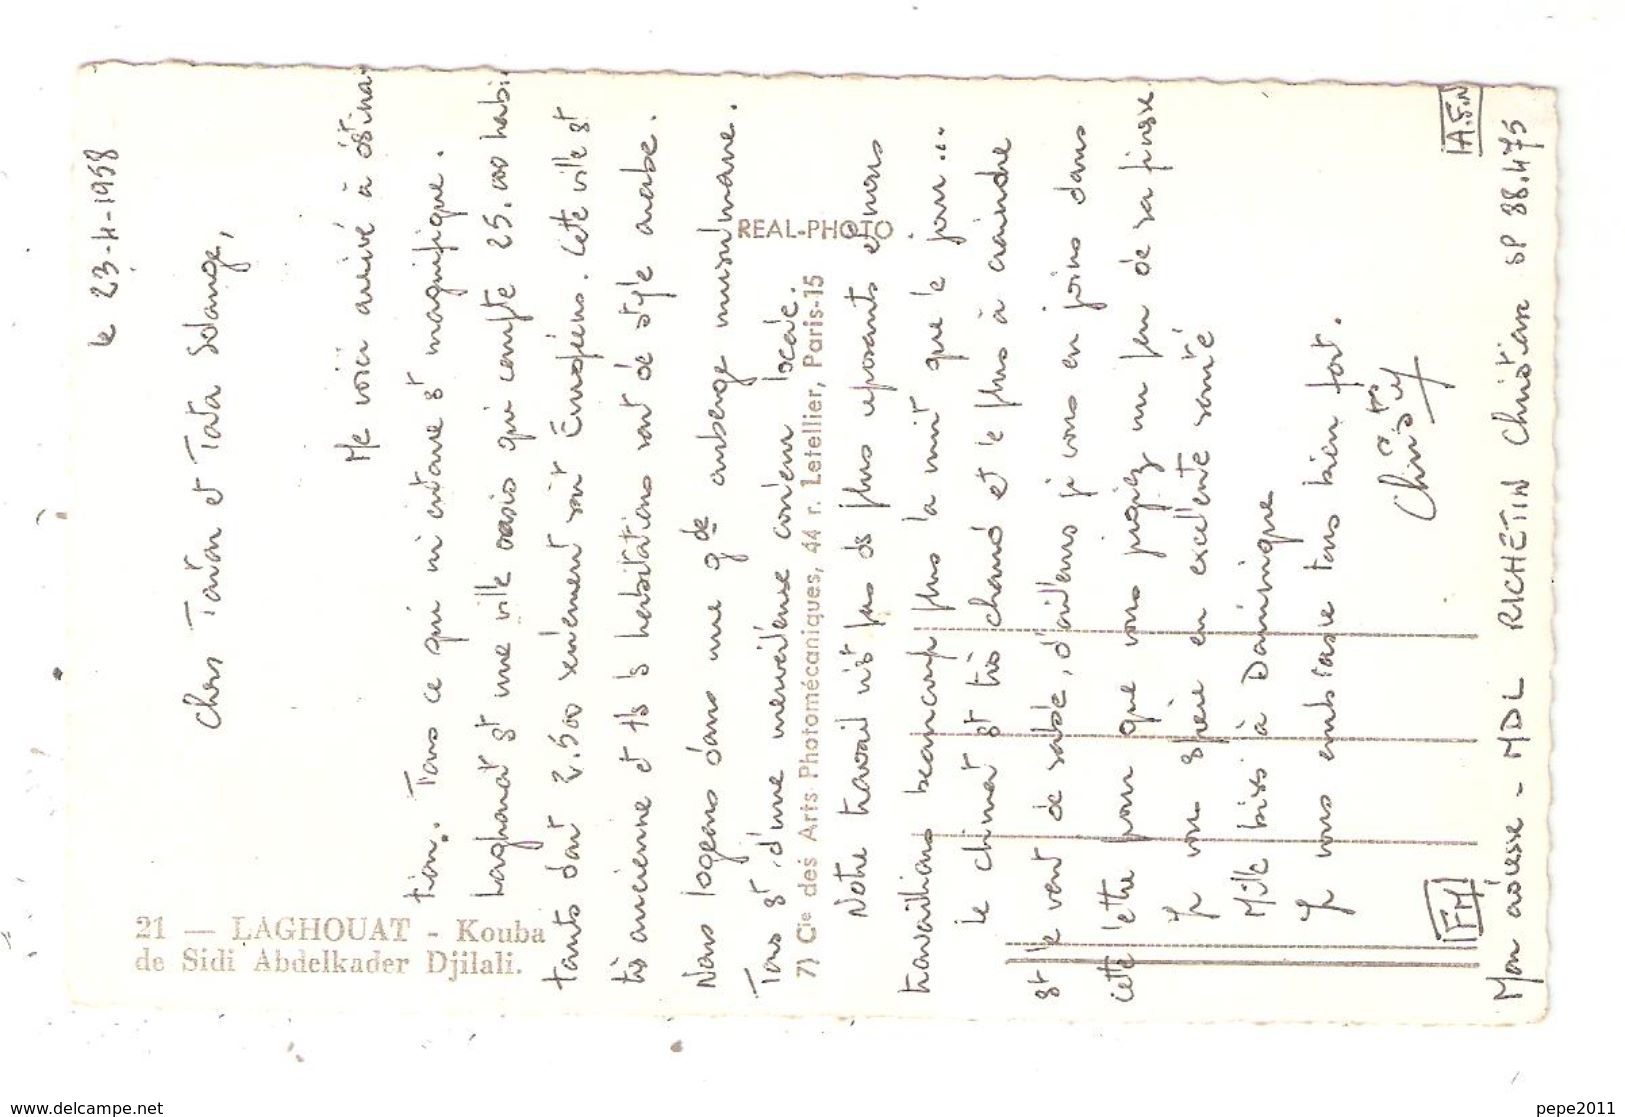 21 — LAGHOUAT - Kouba
de Sidi Abdelkader Djilali.
REAL-PHOTO
7) Cie des Arts Photomécaniques, 44 r. Letellier, Paris-15
le 23-4-1958
Chers Tonton et Tata Solange,
Me voici arrivé à destina-
tion. Tous ce qui m'entoure est magnifique.
Laghouat est une ville oasis qui compte 25.000 habi-
tants dont 2.500 seulement sont Européens. Cette ville est
très ancienne et tts les habitations sont de style arabe.
Nous logeons dans une gde auberge musulmane.
Tous est d'une merveilleuse couleur locale.
Notre travail n'est pas des plus reposants et nous
travaillons beaucoup plus la nuit que le jour...
Le climat est très chaud et le plus à craindre
est le vent de sable, d'ailleurs je vous en joins dans
cette lettre pour que vous jugiez un peu de sa finesse.
Je vous espère en excellente santé
Mille bises à Dominique
Je vous embrasse tous bien fort.
Christian
FM
A.F.N
Mon adresse - MDL RICHETIN Christian SP 88.475
www.delcampe.net
pepe2011